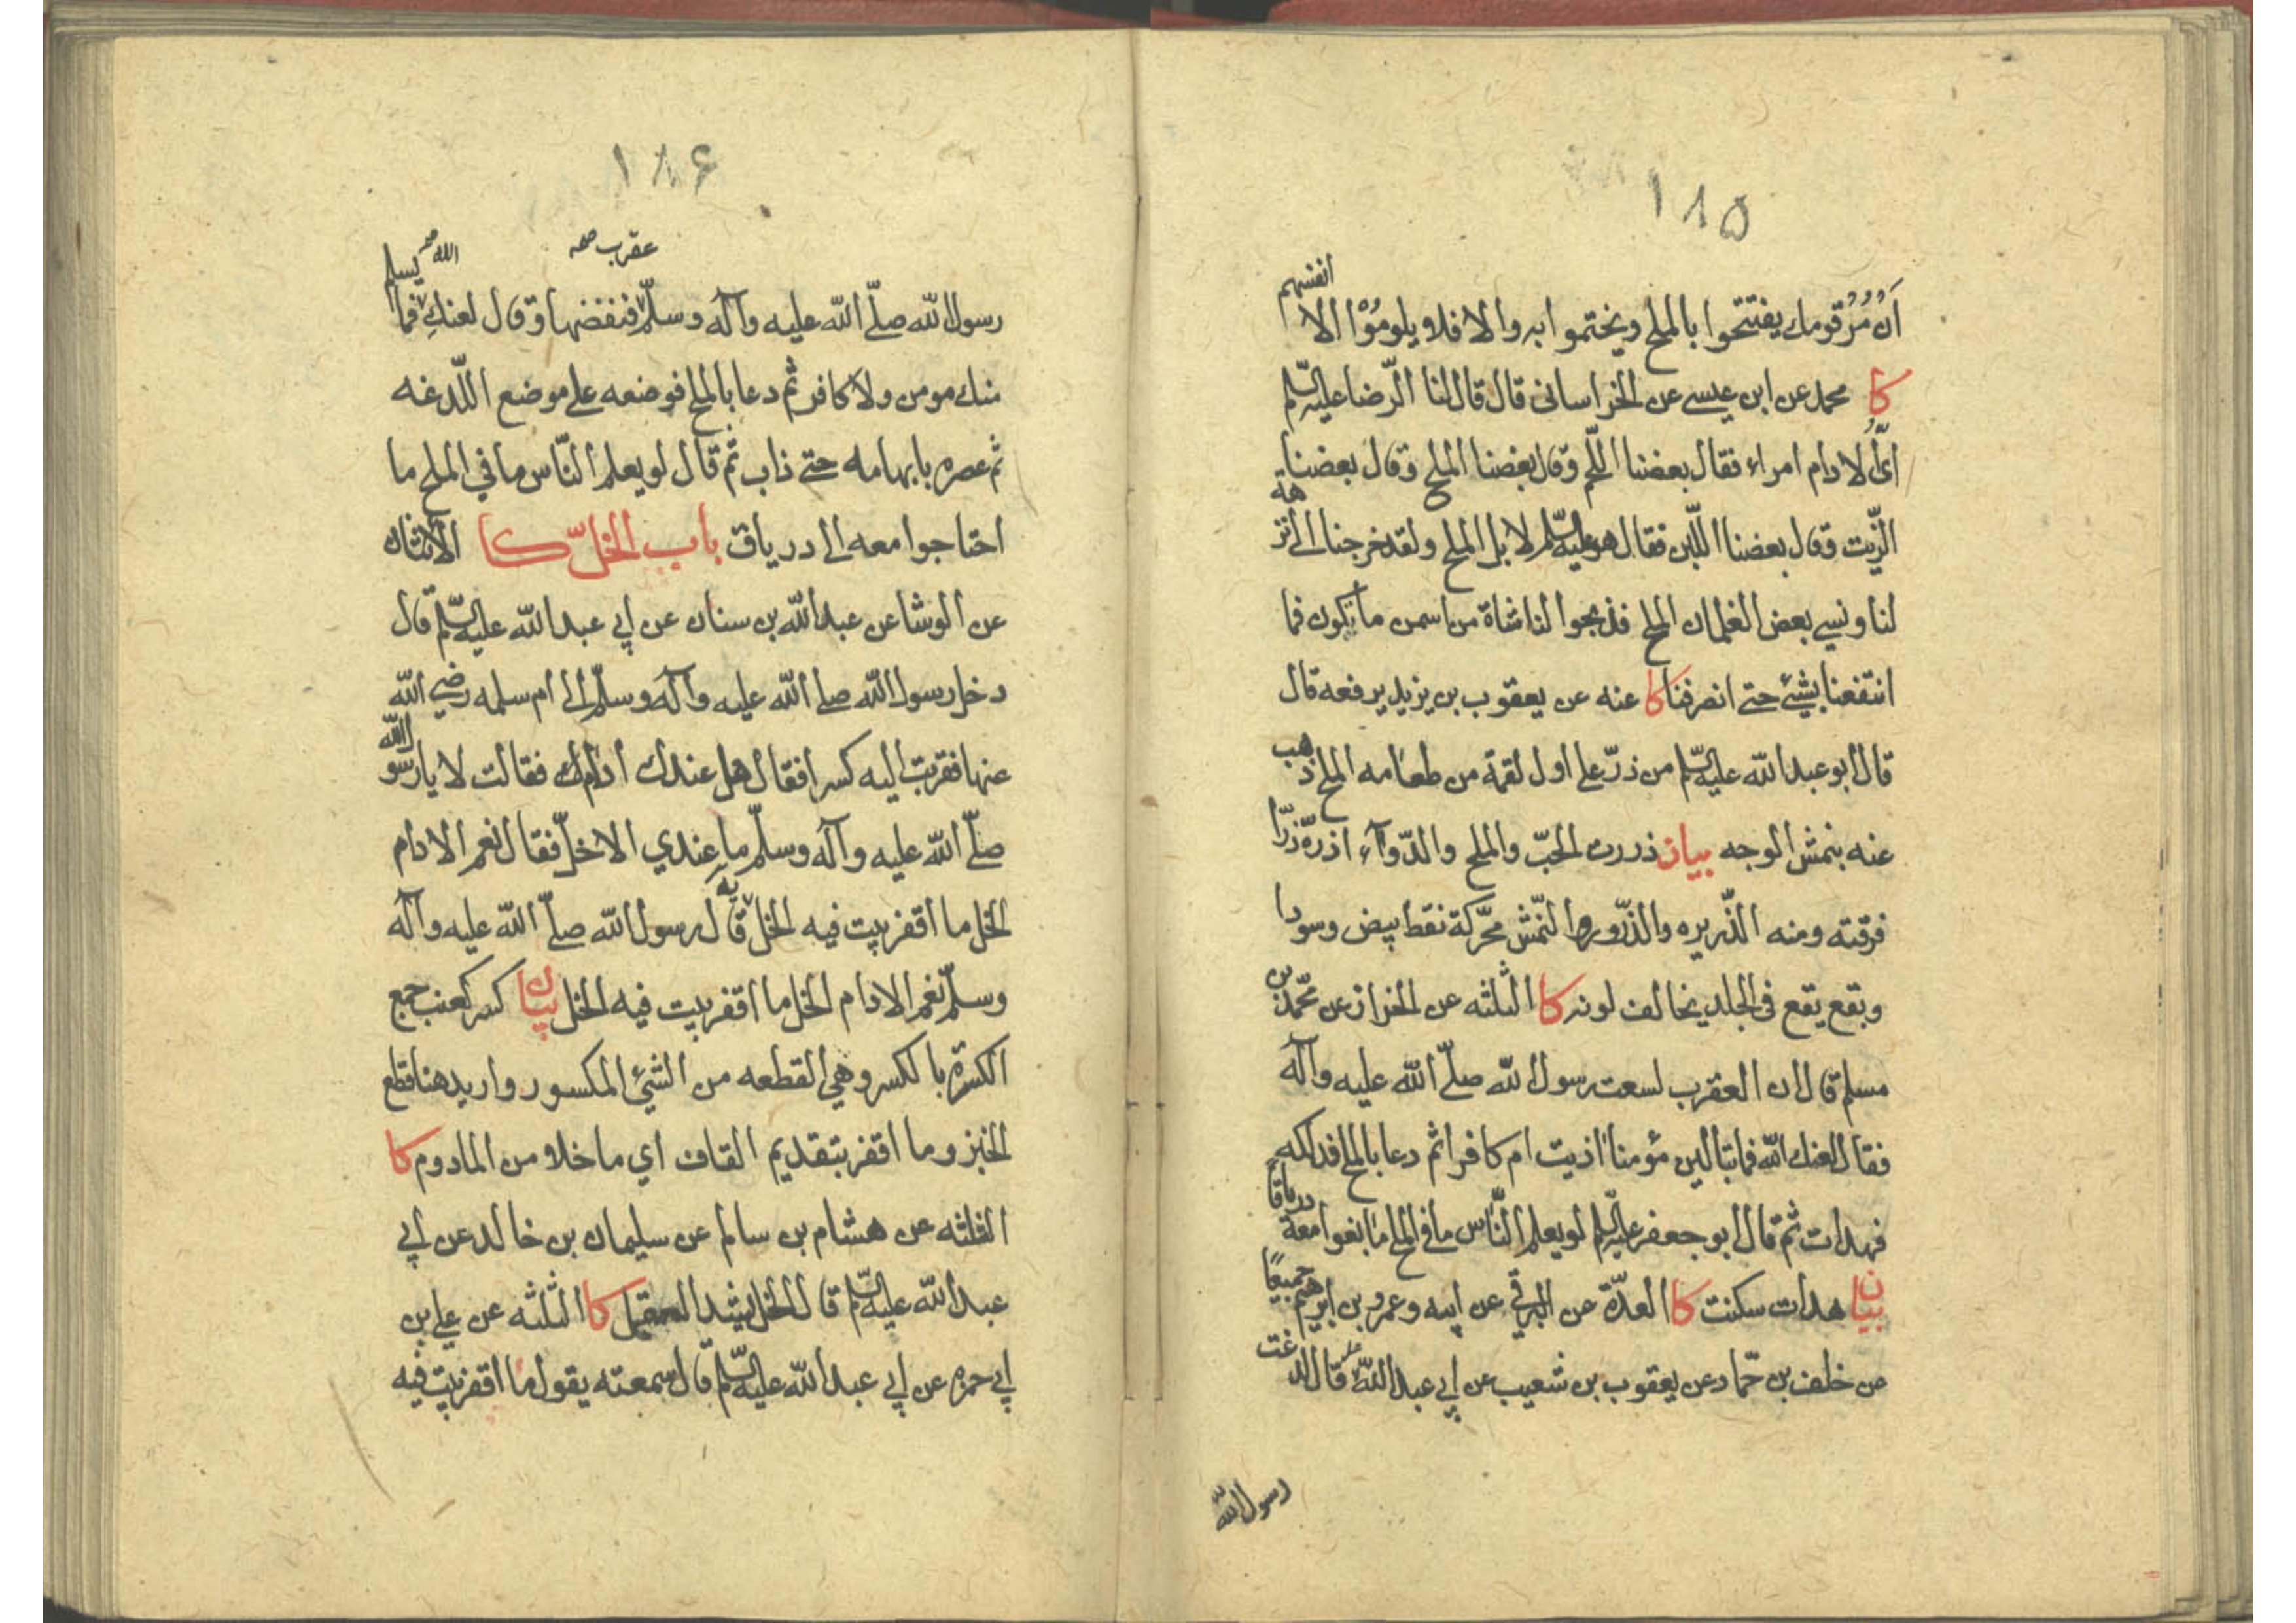 ١٨٥
أن مُرْ قومك يفتتحوا بالملح ويختموا به والا فلا يلومُوْا الا انفسهم
كا محمد عن ابن عيسى عن الخراساني قال قال لنا الرّضا عليه السّلم
ايُّ الادام امراء فقال بعضنا اللّحم وقال بعضنا الملح وقال بعضنا
الزّيت وقال بعضنا اللّبن فقال هو عليه السّلم لا بل الملح ولقد خرجنا الى نزهة
لنا ونسي بعض الغلمان الملح فذبحوا لنا شاة من اسمن ما يكون فما
انتفعنا بشيئ حتى انصرفنا كا عنه عن يعقوب بن يزيد يرفعه قال
قال ابو عبد الله عليه السّلم من ذرّ على اول لقمة من طعامه الملح ذهب
عنه بنمش الوجه بيان ذررت الحبّ والملح والدّوآء اذرّه ذرّا
فرقته ومنه الذّريره والذّرور والنّمش محرّكة نقط بيض وسود
وبقع يقع في الجلد يخالف لونه كا الثلثه عن الخزاز عن محمّد بن
مسلم قال ان العقرب لسعت رسول الله صلّى الله عليه وآله
فقال لعنك الله فما تبالين مؤمنا اذيت ام كافرا ثم دعا بالملح فدلكه
فهدات ثم قال ابو جعفر عليه السّلم لو يعلم النّاس ما في الملح ما بغوا معه درياقا
بيان هدات سكنت كا العدّة عن البرقي عن ابيه وعمرو بن ابرهيم جميعًا
عن خلف بن حمّاد عن يعقوب بن شعيب عن ابي عبد الله قال لدغت
رسول الله
١٨۶
عقرب صح
الله صح
رسول الله صلّى الله عليه وآله وسلّم فنفضها وقال لعنكِ فما يسلم
منك مومن ولا كافر ثم دعا بالملح فوضعه على موضع اللّدغه
ثم عصره بابهامه حتى ذاب ثم قال لو يعلم النّاس ما في الملح ما
احتاجوا معه الى درياق باب الخلّ كا الاثنان
عن الوشا عن عبد الله بن سنان عن ابي عبد الله عليه السّلم قال
دخل رسول الله صلى الله عليه وآله وسلّم الى ام سلمه رضي الله
عنها فقربت اليه كسرا فقال هل عندك ادام فقالت لا يا رسول الله
صلّى الله عليه وآله وسلّم ما عندي الا خلّ فقال نعم الادام
الخل ما اقفر بيت فيه الخل به قال رسول الله صلّى الله عليه وآله
وسلّم نعم الادام الخل ما اقفر بيت فيه الخل بيان كسر كعنب جمع
الكسرة بالكسر وهي القطعه من الشيئ المكسور واريد هنا قطع
الخبز وما اقفر بتقديم القاف اي ما خلا من المادوم كا
الثلثه عن هشام بن سالم عن سليمان بن خالد عن ابي
عبد الله عليه السّلم قال الخل يشد العقل كا الثلثه عن علي بن
ابي حمزه عن ابي عبد الله عليه السّلم قال سمعته يقول ما اقفر بيت فيه